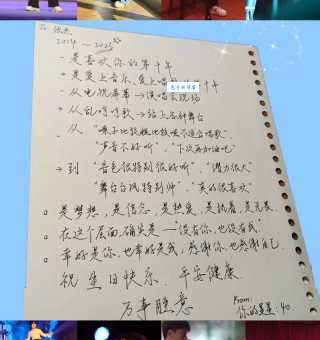 To 张杰
2014 — 2023
- 是喜欢你的第十年
- 是爱上音乐、爱上唱的十年
- 从电视屏幕→演唱会现场
- 从乱哼哼歌→站上各种舞台
- 从 "嗓子比较粗比较哑不适合唱歌"
"声音不好听"，"下次再加油吧"
→ 到 "音色很特别很好听"，"潜力很大"
"舞台台风特别帅"，"真的很喜欢"
是梦想，是信念，是热爱，是执着，是无畏
在这个层面，确实是"没有你，也没有我"
幸好是你，也幸好是我，感谢你，也感谢自己
祝 生日快乐，平安健康
万事胜意
From:
你的星星·40